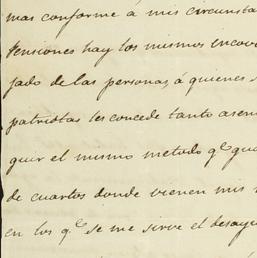 mas conforme á mis circunsta
Pensiones hay los mismos incov
jado de las personas, á quienes s
patriotas les concede tanto asen
guir el mismo metodo qe. gua
de cuartos donde vienen mis
en los qe. se me sirve el desayu